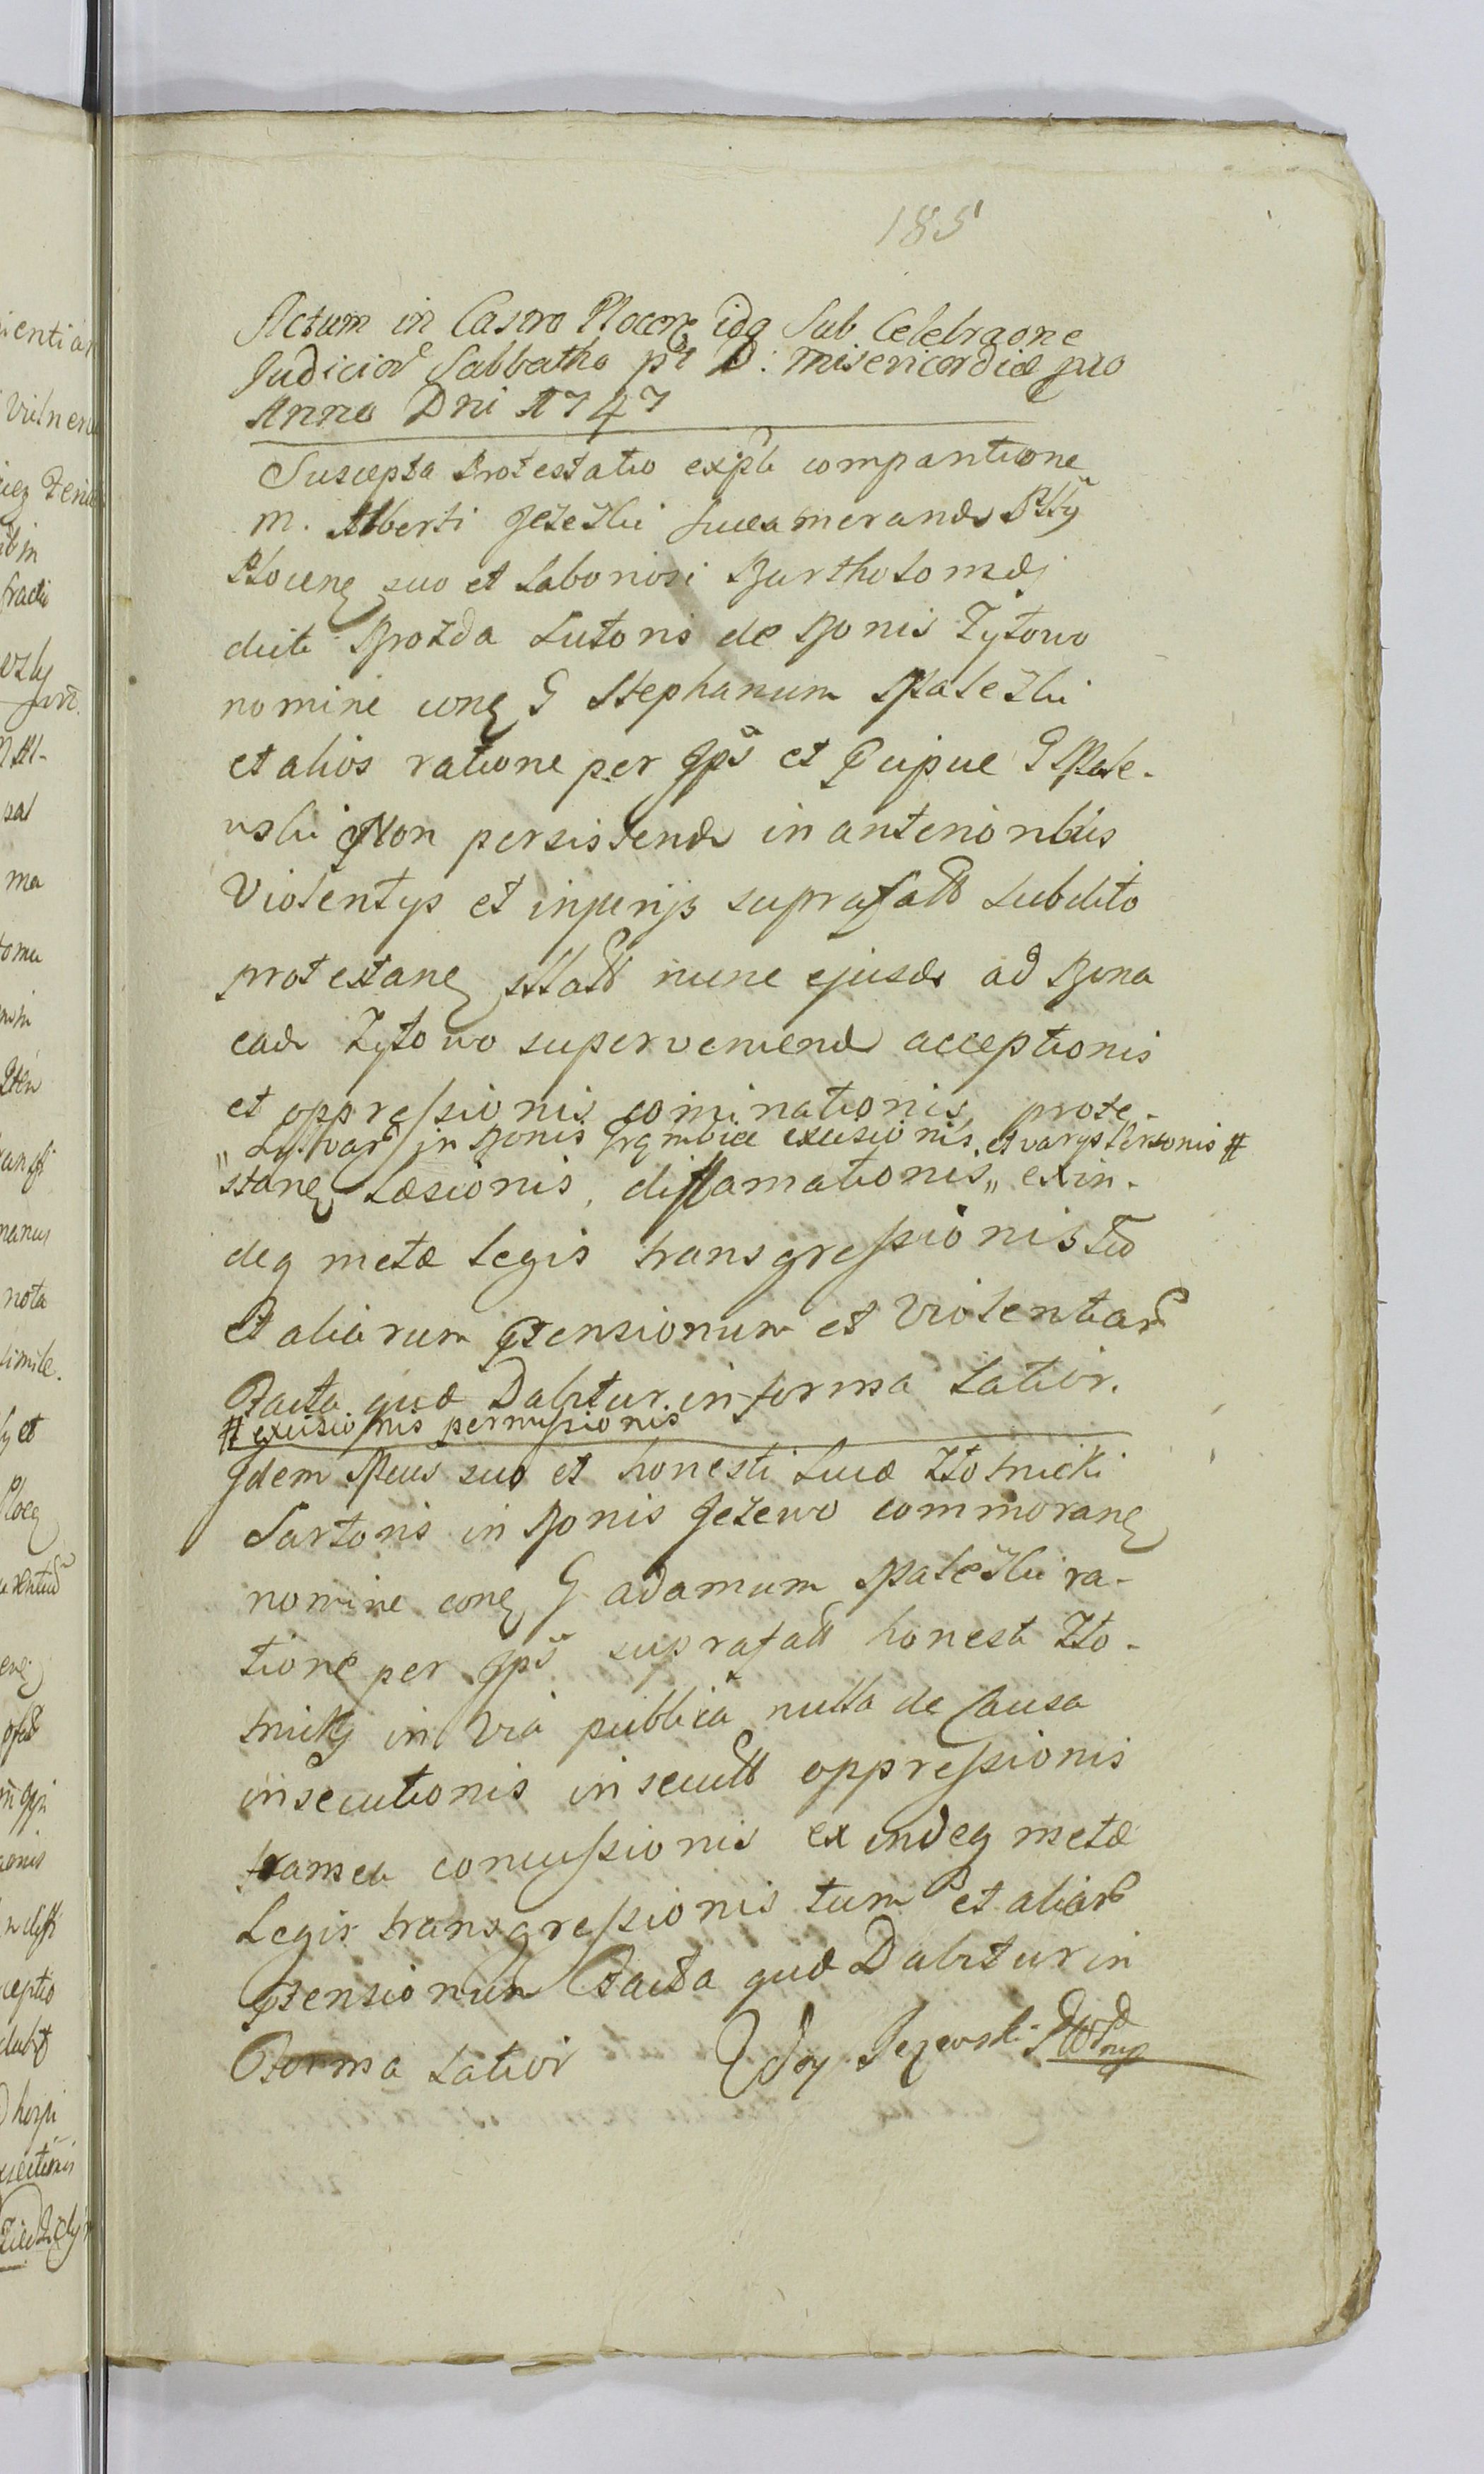 185
Actum in Castro Plocen idq Sub Celebraone
Judicior Sabbatho pt D: Misericordiæ pro
Anno Dni 1747
Suscepta Protestatio expti comparitione
M. Alberti Jeżeski Succamerand
Plocen suo et Laboriosi Bartholomæj
dicti Brozda Sutoris de Bonis Zytowo
nomine con G Stephanum Paleski
et alios ratione per Jps et Pcipue G Pale-
wski Non persistend in anterioribus
Violentys et injurijs suprafatt Subdito
protestan illatt nunc ejusd ad Bona
ead Zytowo superveniend acceptionis
et oppressionis cominationis prote-
" in Bonis excisionis et varys Personis #
stan Læsionis, diffamationis " exin-
deq metæ Legis transgressionis
Et aliarum Ptensionum et Violentiar
Facta quæ Dabitur in forma Latior.
# excisionis permissionis
Jdem Pcus suo et honesti Lucæ Złotnicki
Sartoris in Bonis Jeżewo commoran
nomine con G Adamum Paleski ra-
tione per Jps suprafatt honest Zło-
tnicky in Via publica nulla de Causa
insecutionis insecutt oppressionis
concussionis exindeq metæ
Legis transgressionis tum et aliar
Ptensionum Facta quæ Dabitur in
Forma Latior Jezewski